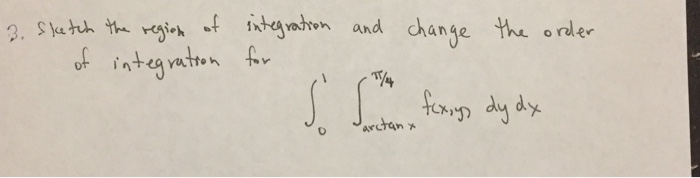 3. Sketch the region of integration and change the order
of integration for
∫₀¹ ∫_{arctan x}^{π/4} f(x,y) dy dx